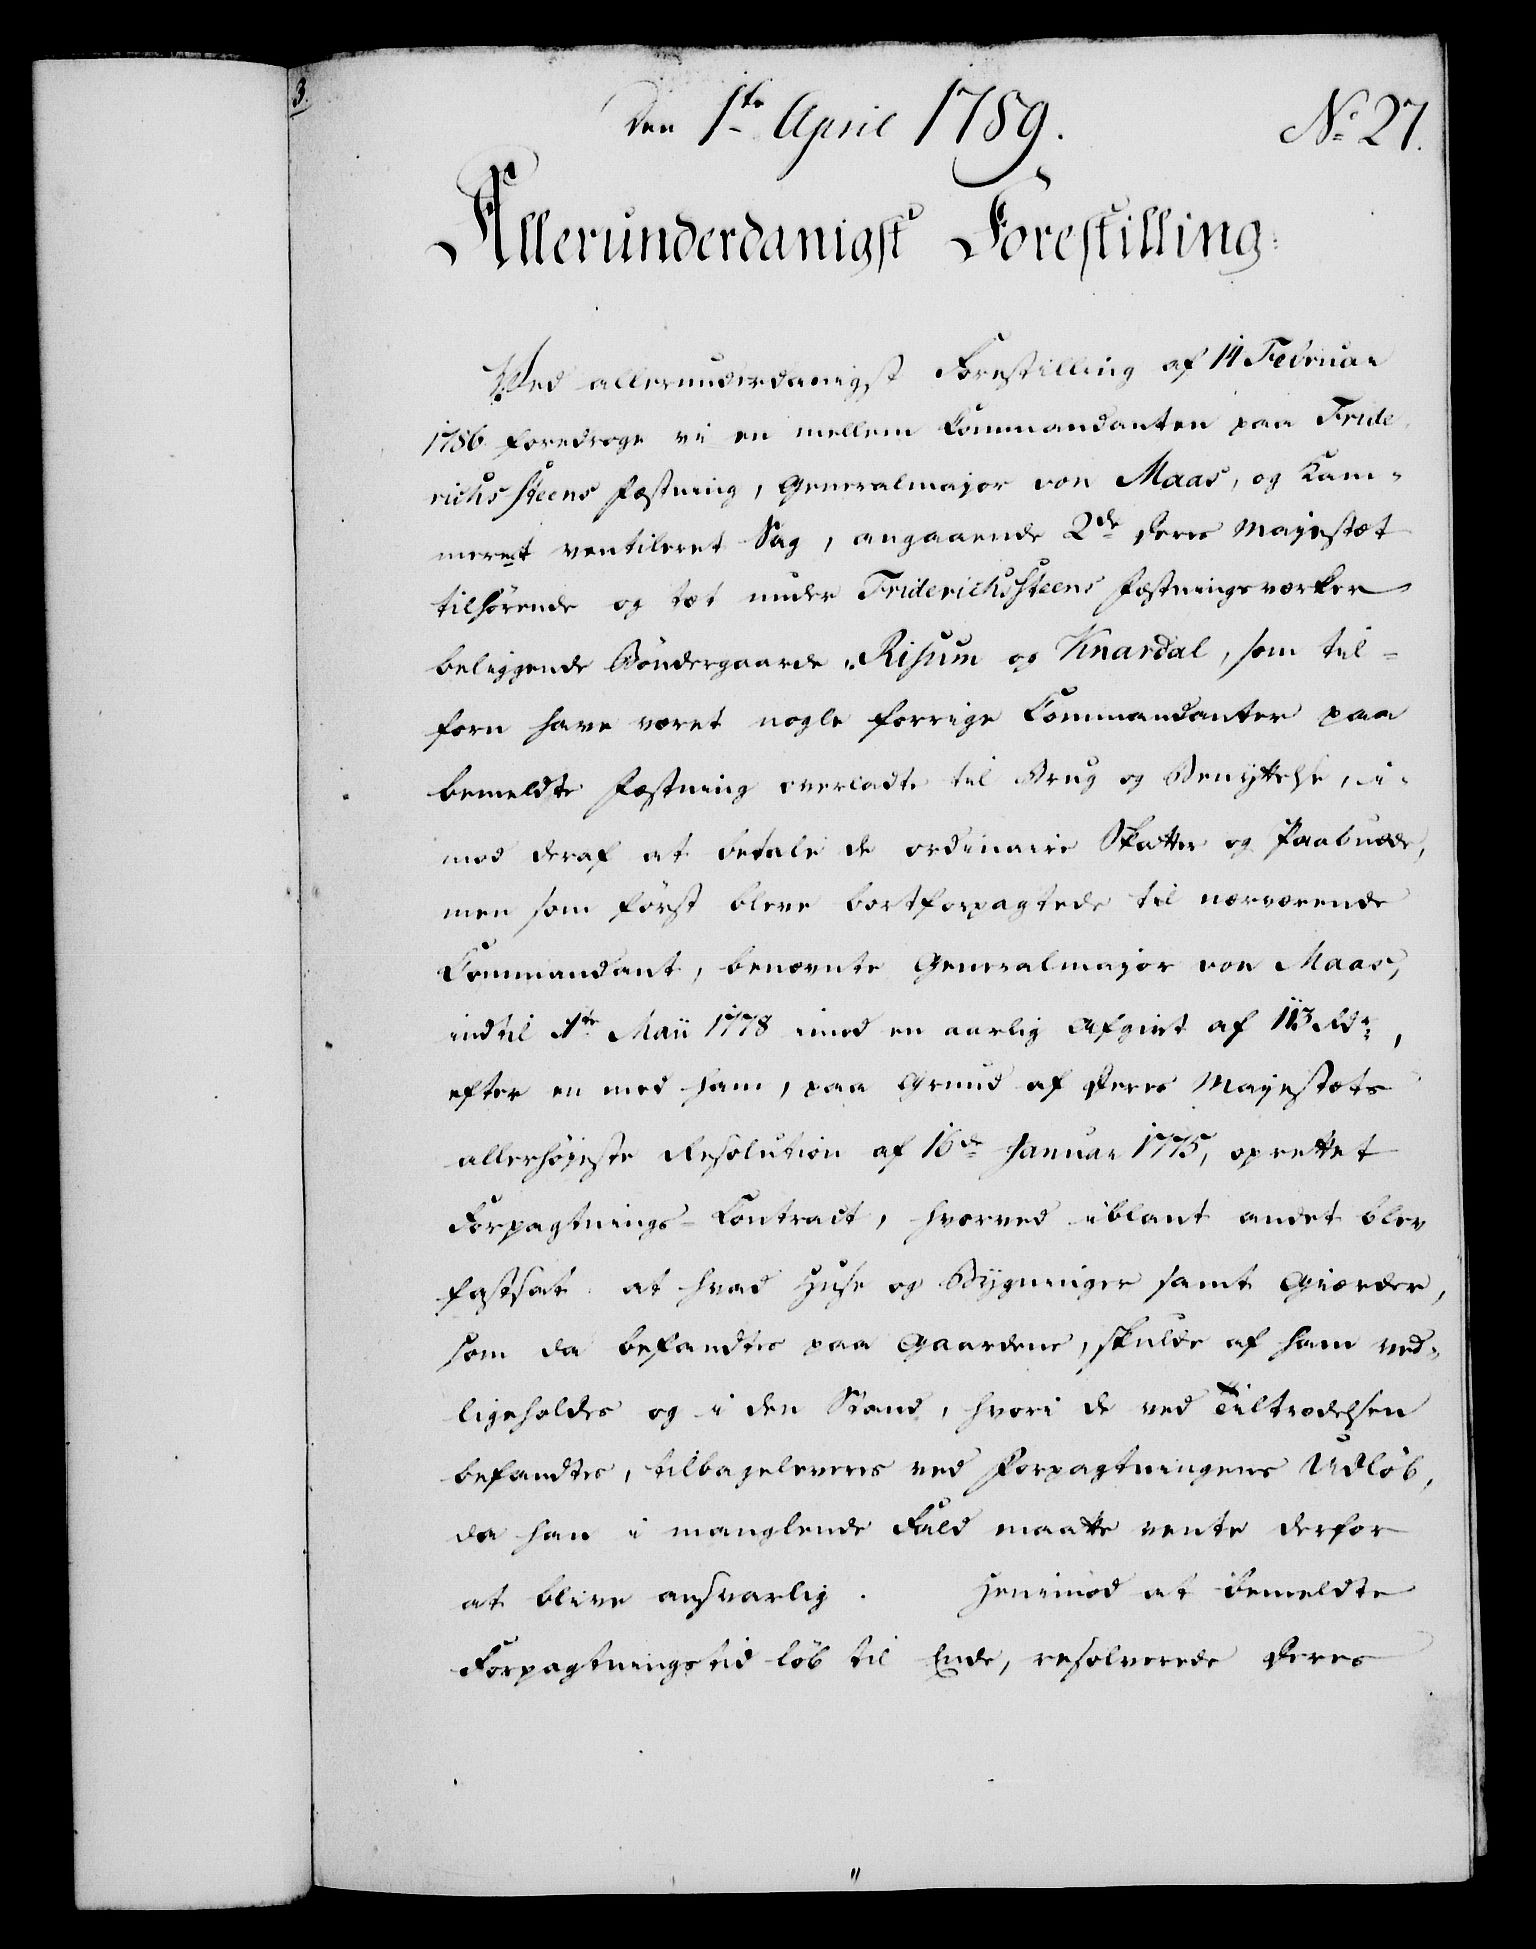 3.
Den 1te April 1789.
No 27.
Allerunderdanigst Forestilling.
Ved allerunderdanigst Forestilling af 14 Februar
1786 foredroge vi en mellem Commandanten paa Fride
richssteens Fæstning, Generalmajor von Maas, og Kam-
meret ventileret Sag, angaaende 2de Deres Majestæt
tilhørende og tæt under Friderichssteens Fæstningsværker
beliggende Bøndergaarde, Risum og Knardal, som til-
forn have været nogle forrige Commandanter paa
bemeldte Fæstning overladte til Brug og Benyttelse, i-
mod deraf at betale de ordinaire Skatter og Paabudde,
men som først bleve bortforpagtede til nærværende
Commandant, benævnte Generalmajor von Maas,
indtil 1te Maii 1778 imod en aarlig Afgivt af 113 Rdr,
efter en med ham, paa Grund af Deres Majestæts
allerhøjeste Resolution af 16de Januar 1775, oprettet
Forpagtnings-Contract, hvorved iblant andet blev
fastsat at hvad Huse og Bygninger samt Giærder,
som da befandtes paa Gaardene, skulde af ham ved-
ligeholdes og i den Stand, hvori de ved Tiltrædelsen
befandtes, tilbageleveres ved Forpagtningens Udløb,
da han i manglende Fald maatte vente derfor
at blive ansvarlig. Henimod at bemeldte
Forpagtningstid løb til Ende, resolverede Deres